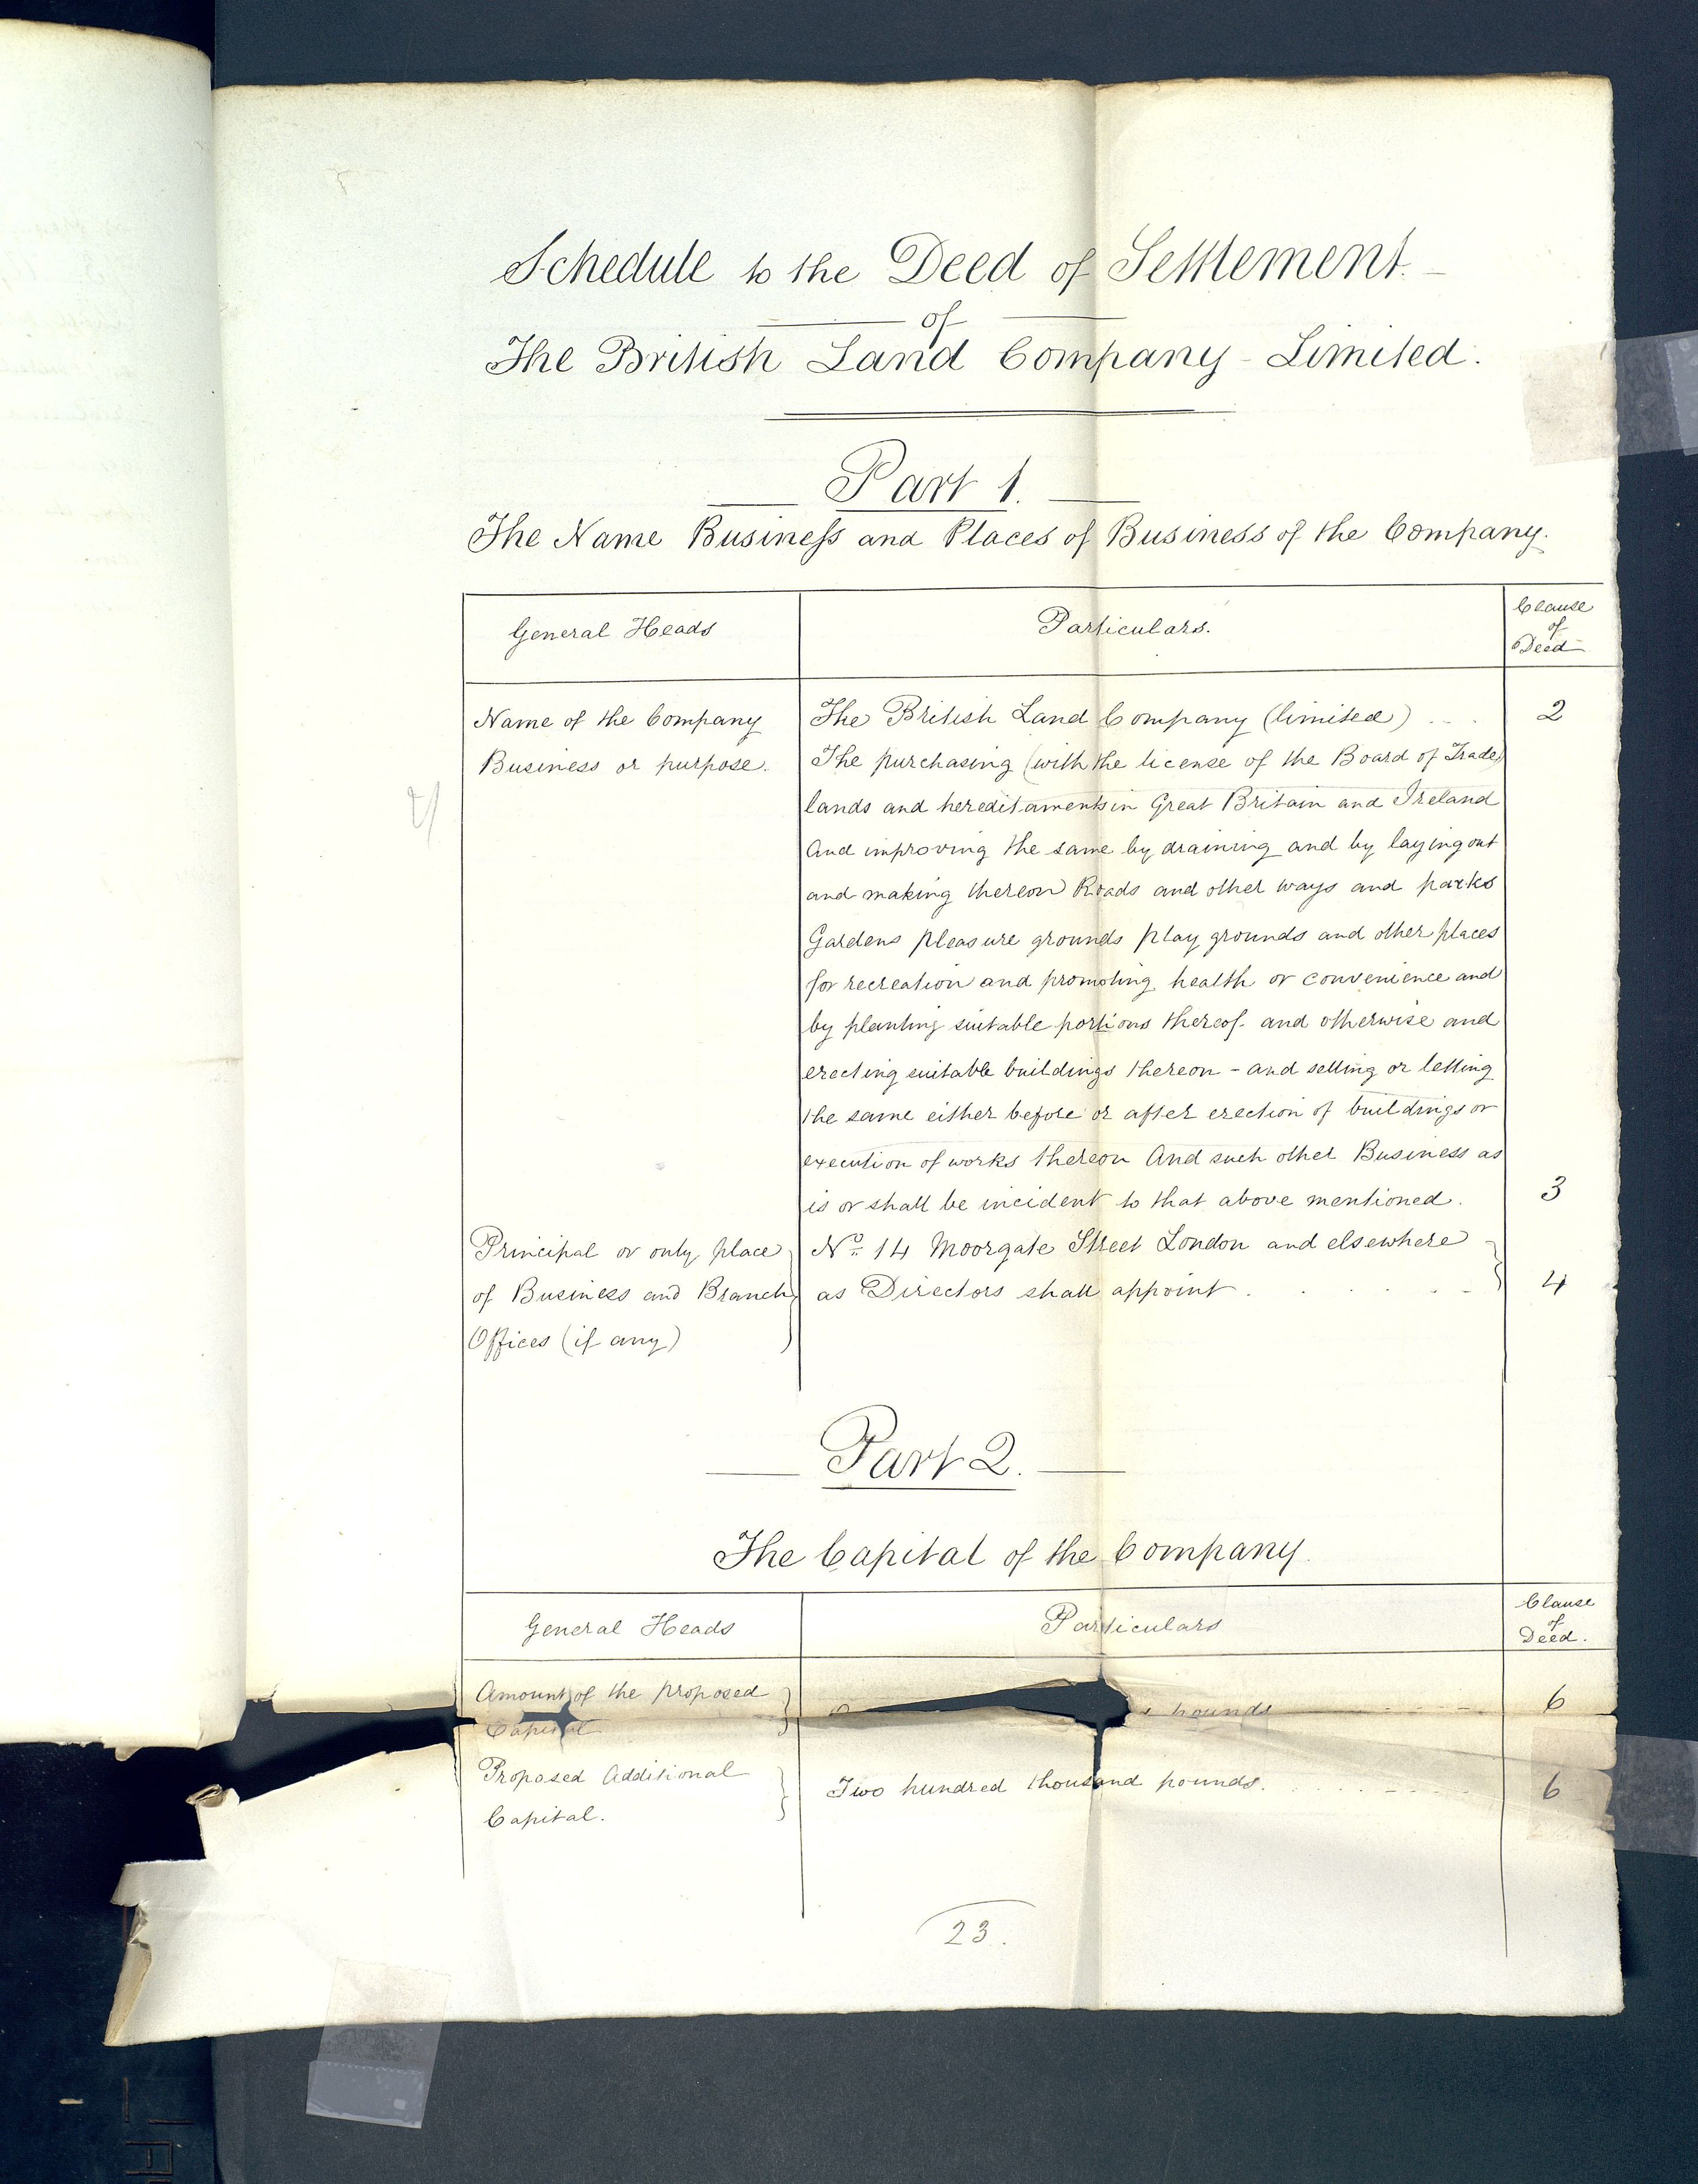 Schedule to the Deed of Settlement.
of
The British Land Company - Limited.
Part 1.
The Name Business and Places of Business of the Company.
General Heads
Particulars.
Clause
of
Deed
Name of the Company
The British Land Company (limited)
2
Business or purpose.
The purchasing (with the license of the Board of Trade)
lands and hereditaments in Great Britain and Ireland
And improving the same by draining and by laying out
and making thereon Roads and other ways and parks
Gardens pleasure grounds play grounds and other places
for recreation and promoting health or convenience and
by planting suitable portions thereof and otherwise and
erecting suitable buildings thereon - and selling or letting
the same either before or after erection of buildings or
execution of works thereon And such other Business as
is or shall be incident to that above mentioned.
3
Principal or only place
of Business and Branch
Offices (if any)
No. 14 Moorgate Street London and elsewhere
as Directors shall appoint.
4
Part 2.
The Capital of the Company.
General Heads
Particulars
Clause
of
Deed.
Amount of the proposed
Capital
pounds
6
Proposed Additional
Capital.
Two hundred thousand pounds.
6
23.